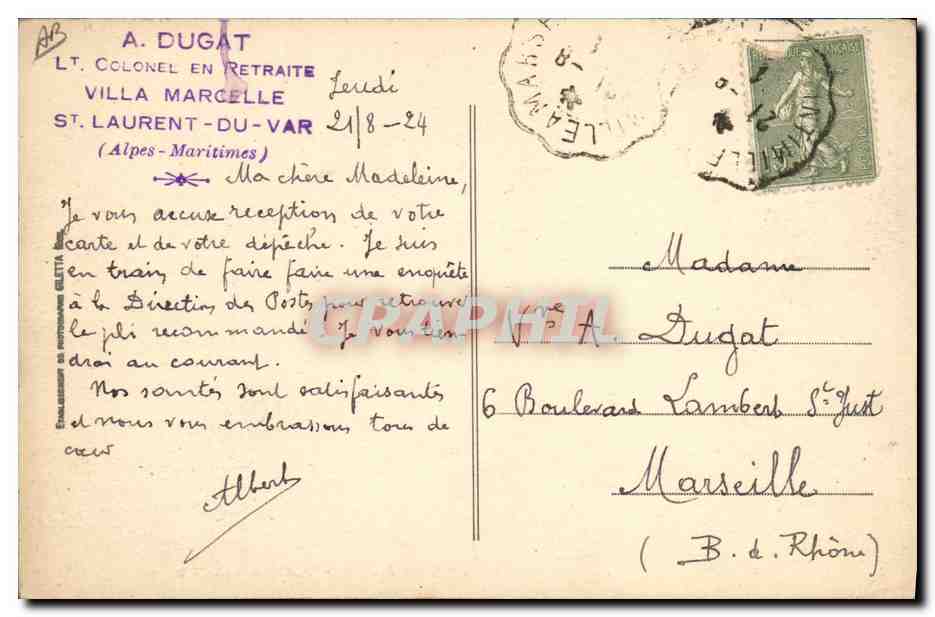 AB
A. DUGAT
LT. COLONEL EN RETRAITE
VILLA MARCELLE
ST. LAURENT-DU-VAR
(Alpes-Maritimes)
Jeudi
21/8-24
Ma chère Madeleine,
Je vous accuse reception de votre
carte et de votre dépêche. Je suis
en train de faire faire une enquête
à la Direction des Postes pour retrouver
le pli recommandé. Je vous tien-
drai au courant.
Nos santés sont satisfaisantes
et nous vous embrassons tous de
cœur
Albert
ETABLISSEMENT DE PHOTOGRAPHIE GILETTA
CRAPHIL
Madame
Vve A. Dugat
6 Boulevard Lambert St Just
Marseille
(B. d. Rhône)